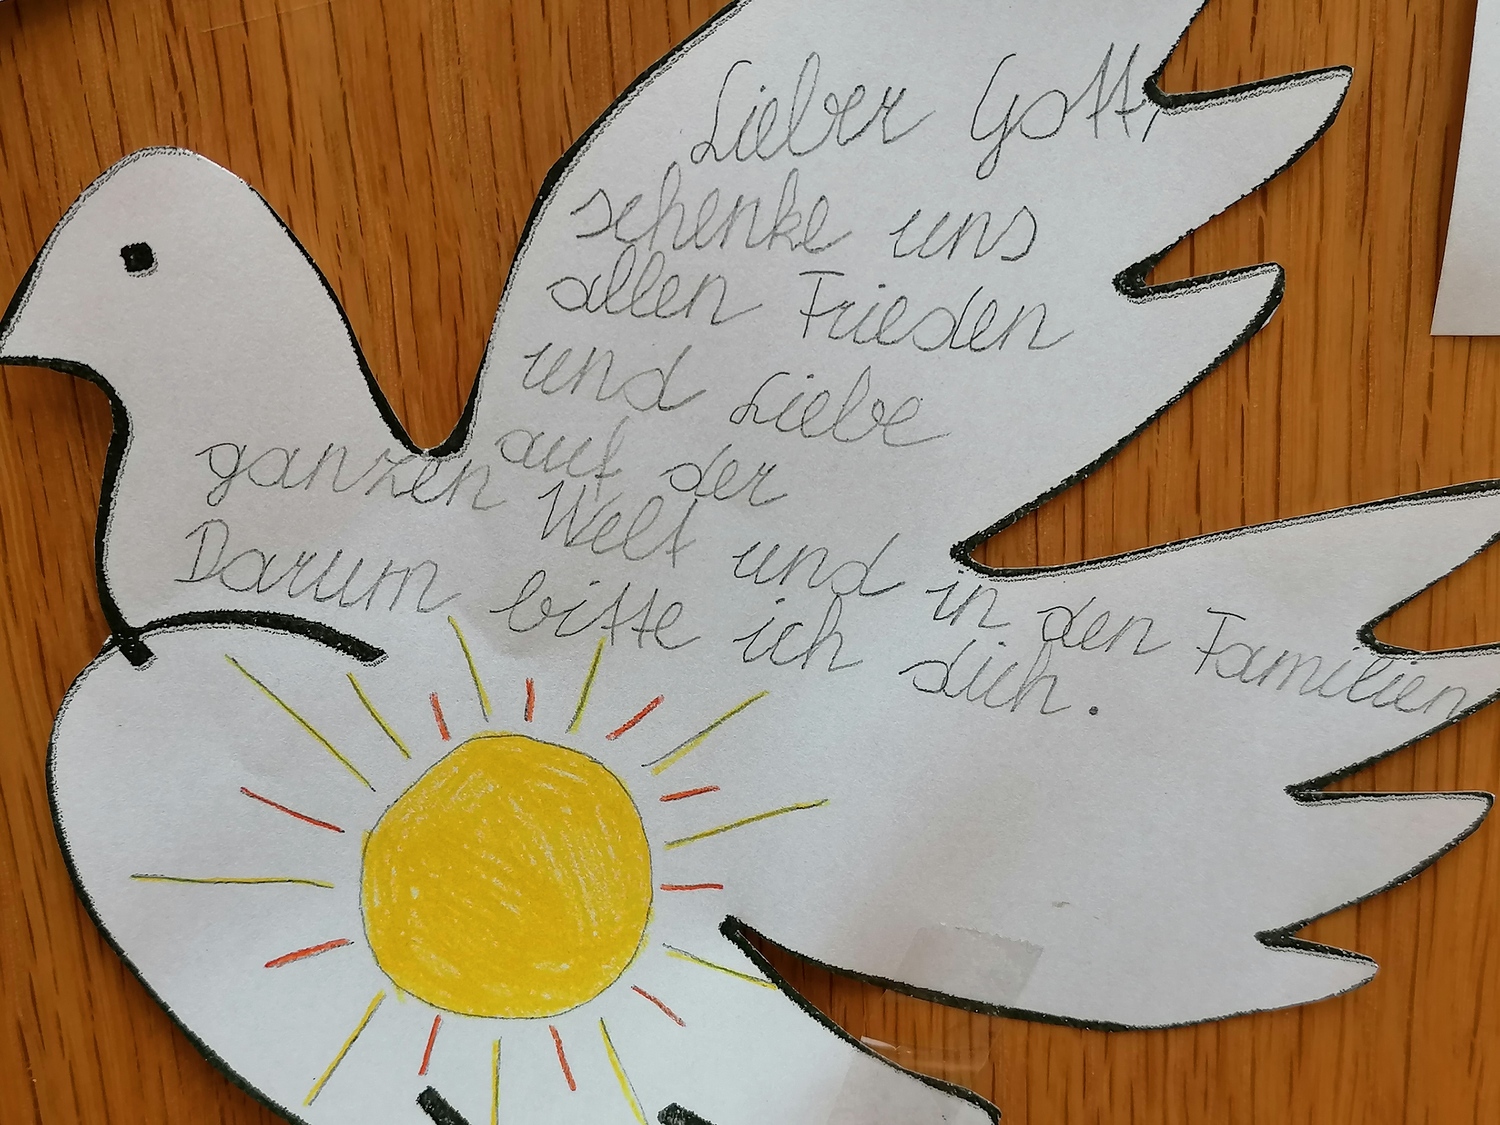 Lieber Gott,
schenke uns
allen Frieden
und Liebe
auf der
ganzen Welt und in den Familien
Darum bitte ich dich.